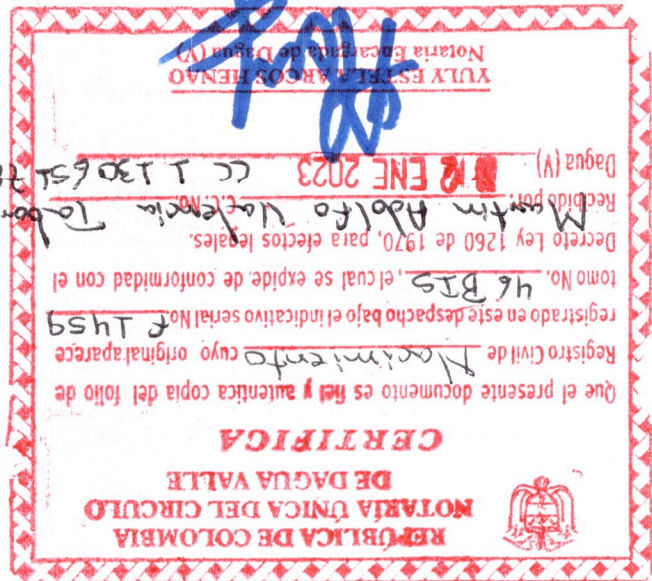 REPÚBLICA DE COLOMBIA
NOTARÍA ÚNICA DEL CIRCULO
DE DAGUA VALLE
CERTIFICA
Que el presente documento es fiel y autentica copia del folio de
Registro Civil de Nacimiento cuyo original aparece
registrado en este despacho bajo el indicativo serial No. F 1459
tomo No. 46 BIS, el cual se expide de conformidad con el
Decreto Ley 1260 de 1970, para efectos legales.
Recibido por: Martin Adolfo Valencia
Dagua (V) 12 ENE 2023 CC 1 130 651
YULY ESTELA ARCOS HENAO
Notaria Encargada de Dagua (V)